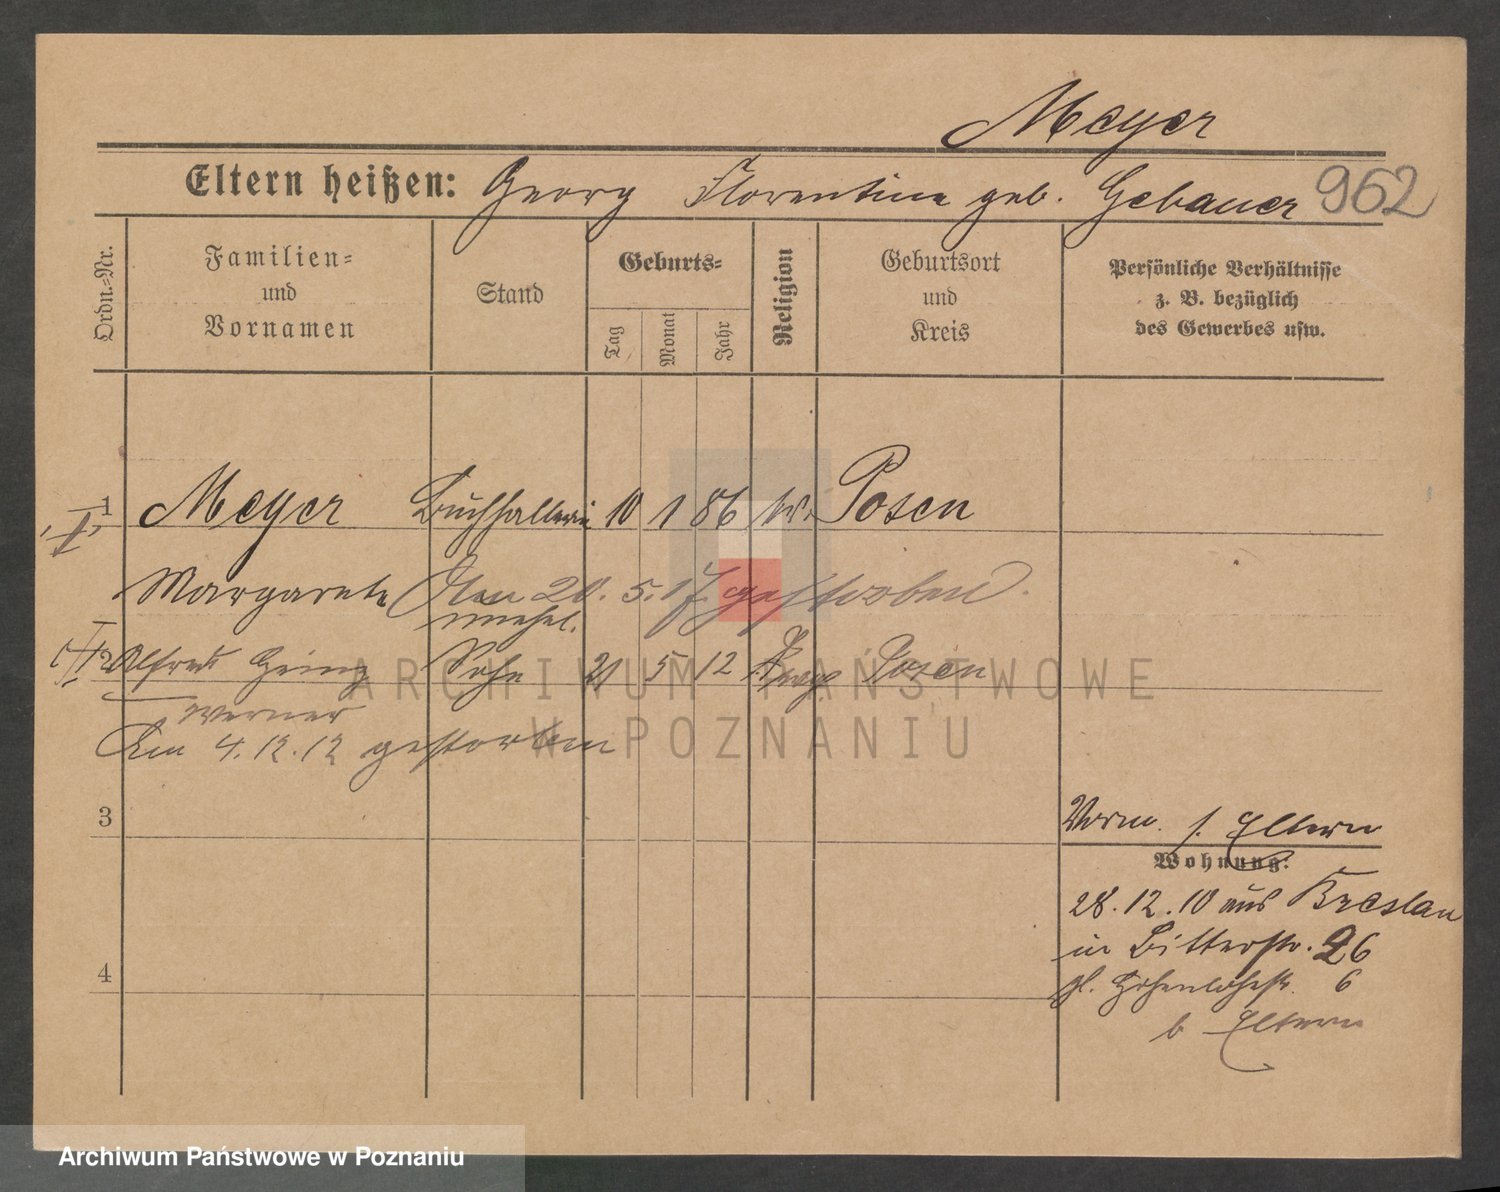 Meyer
Eltern heißen: Georg Florentine geb. Gebauer 962
Ordn.-Nr.
Familien-
und
Vornamen
Stand
Geburts-
Tag
Monat
Jahr
Religion
Geburtsort
und
Kreis
Persönliche Verhältnisse
z. B. bezüglich
des Gewerbes usw.
1 Meyer Buchhalterin 10 1 86 Posen
Margarete Den 20. 5. 17 gestorben.
unehel.
2 Alfred Heinz Sohn 21 5 12 Posen
Werner
Am 4.12.12 gestorben
3
Verw. s. Eltern
Wohnung:
28. 12. 10 aus Breslau
in Bitterstr. 26
4
Hohenlohestr. 6
b Eltern
ARCHIWUM PAŃSTWOWE
W POZNANIU
Archiwum Państwowe w Poznaniu